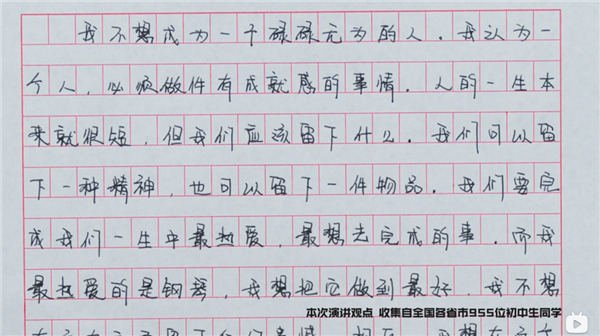 我不想成为一个碌碌无为的人。我认为一
个人，必须做件有成就感的事情。人的一生本
来就很短，但我们应该留下什么。我们可以留
下一种精神，也可以留下一件物品。我们要完
成我们一生中最热爱，最想去完成的事。而我
最热爱的是钢琴，我想把它做到最好，我不想
本次演讲观点 收集自全国各省市955位初中生同学